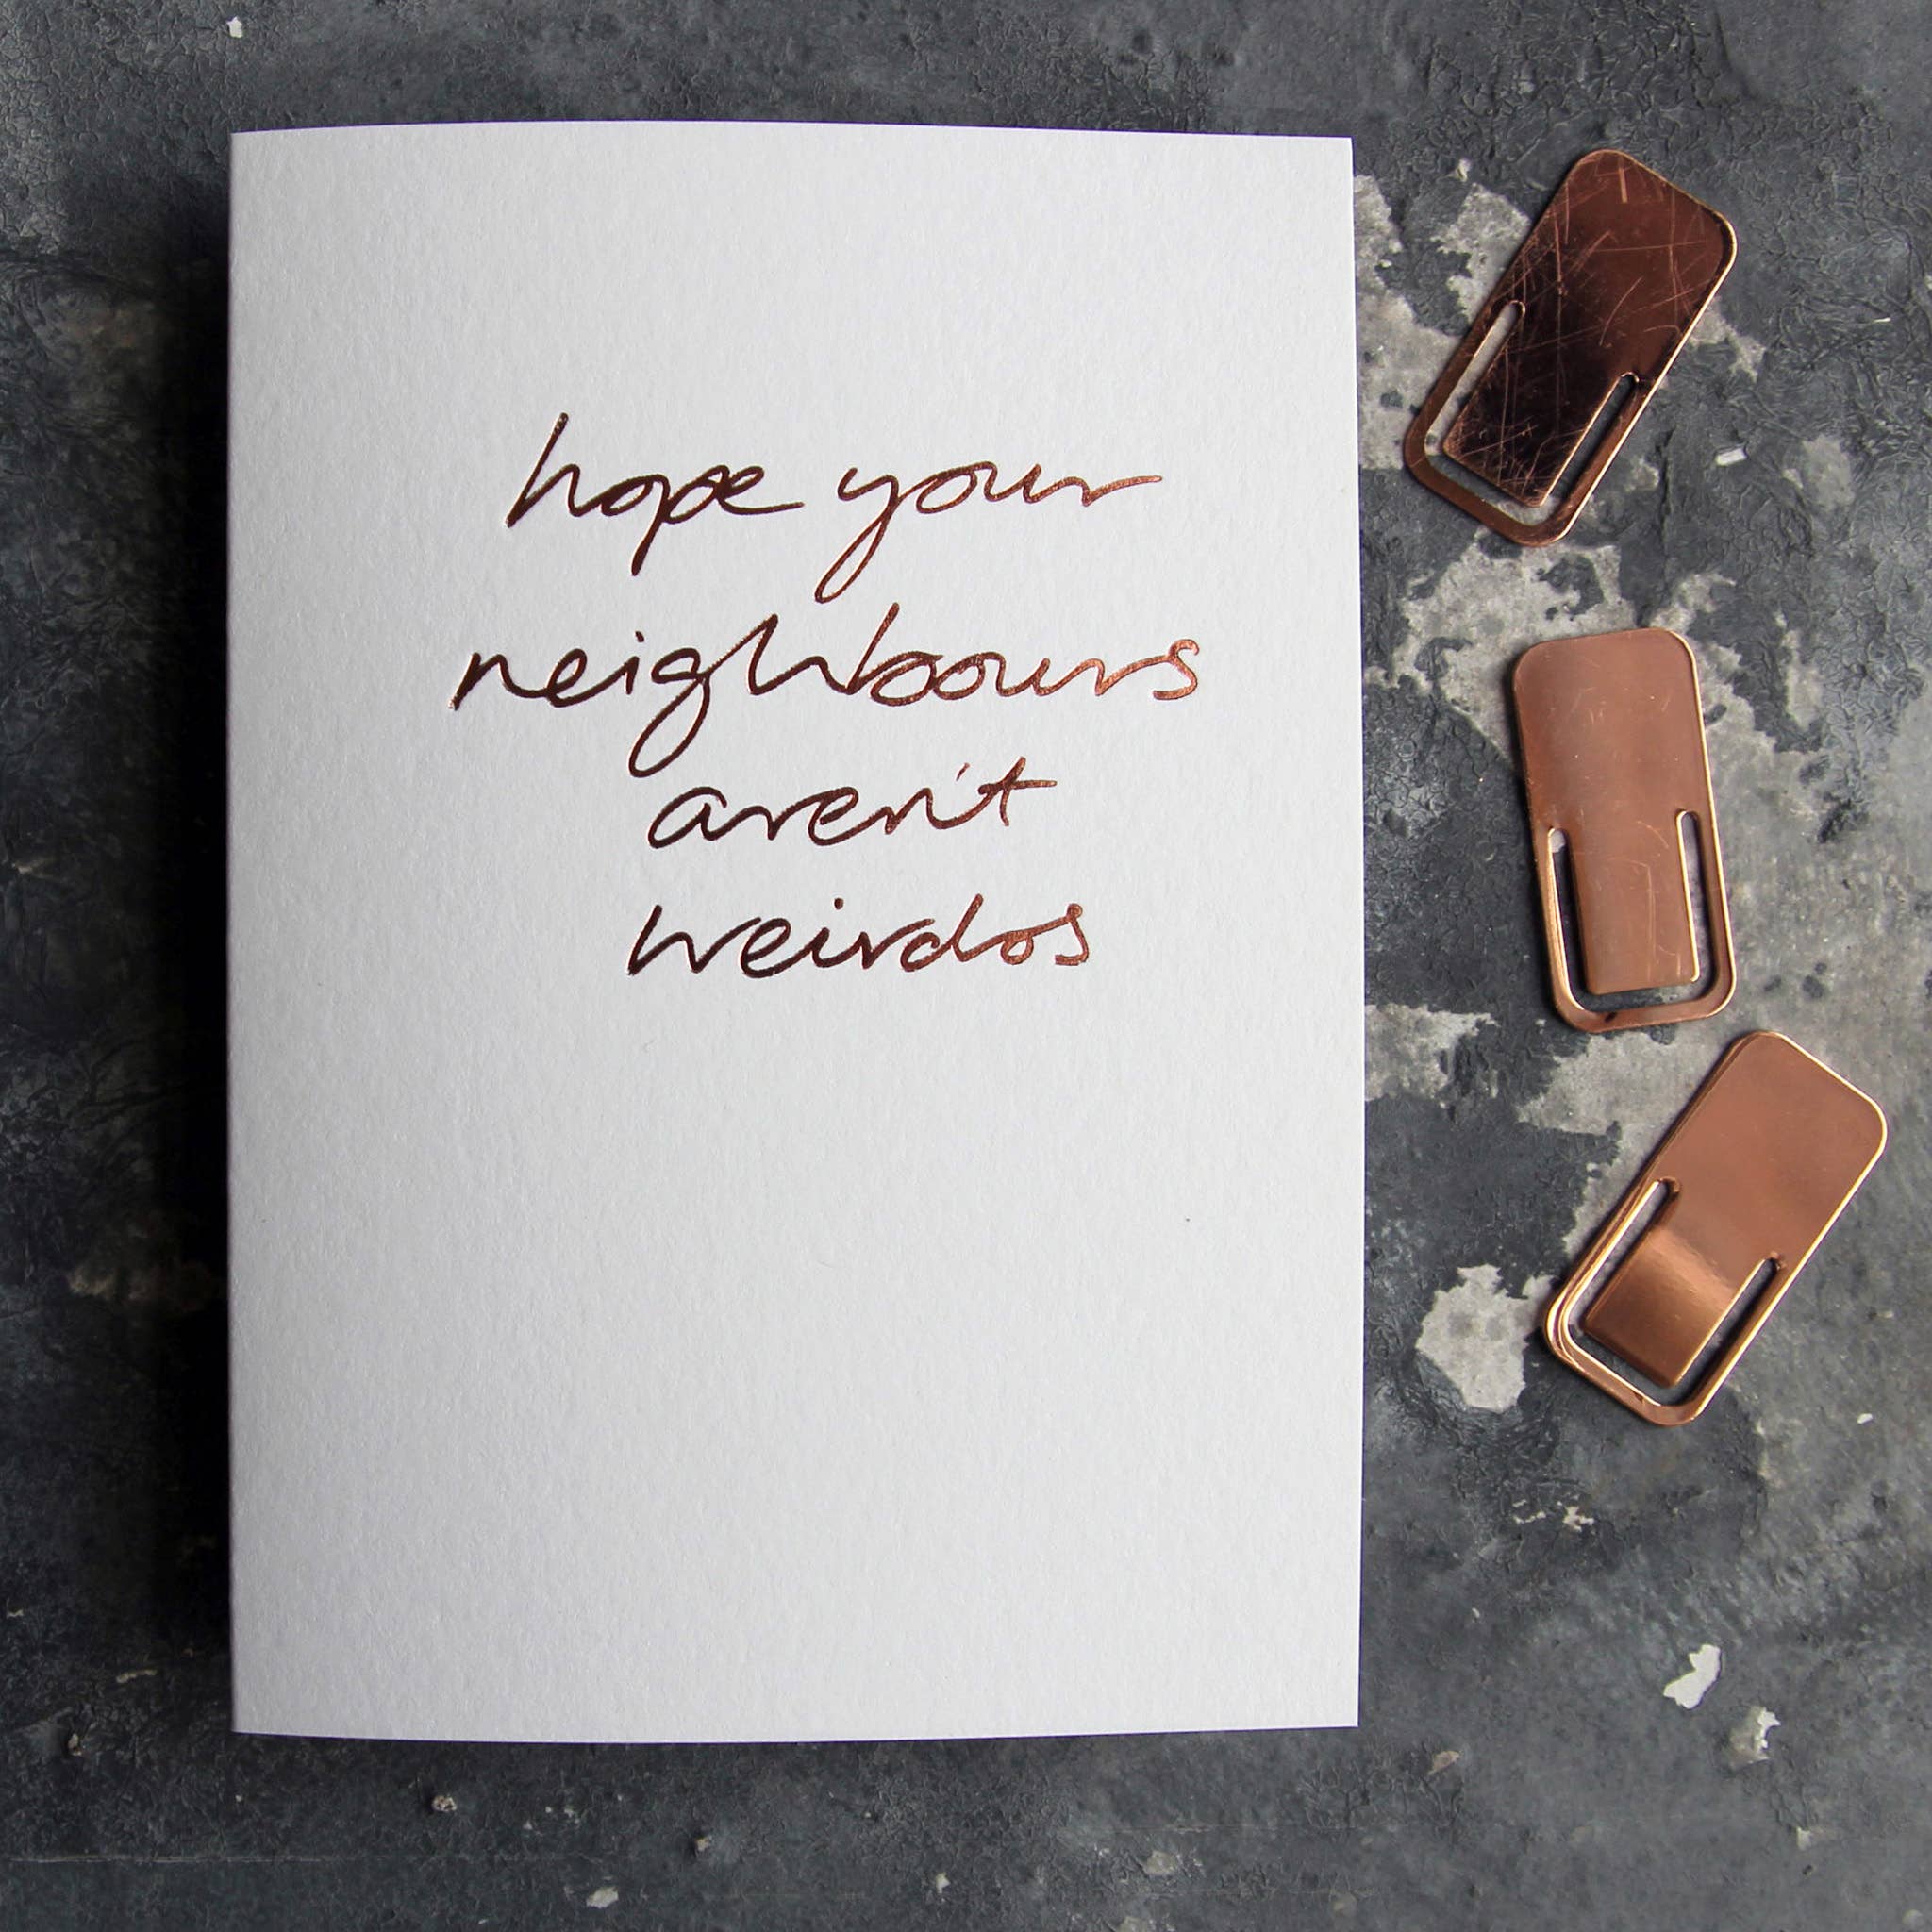 hope your
neighbours
aren't
weirdos